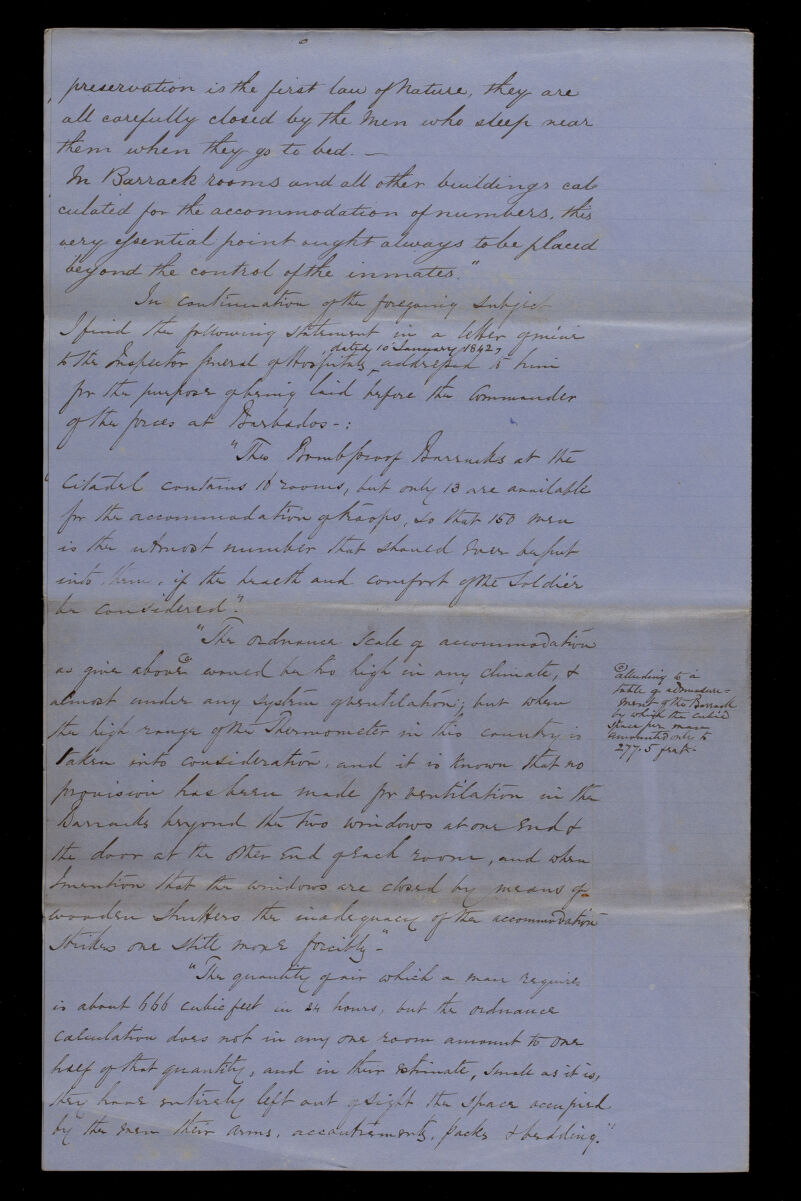 preservation is the first law of Nature, they are
all carefully closed by the Men who sleep near
them when they go to bed. —
In Barrack rooms and all other buildings cal
culated for the accommodation of numbers, this
very essential point ought always to be placed
beyond the control of the inmates."
In continuation of the foregoing subject
I find the following statement in a letter of mine
dated 10 January 1842,
to the Inspector General of Hospitals, addressed to him
for the purpose of being laid before the Commander
of the forces at Barbados -:
"The Bombproof Barracks at the
Citadel contains 18 rooms, but only 13 are available
for the accommodation of troops, so that 150 men
is the utmost number that should ever be put
into them, if the health and comfort of the Soldier
be considered".
"The ordnance Scale of accommodation
as give above would be too high in any climate, &
almost under any system of ventilation; but when
the high range of the Thermometer in this country is
taken into consideration, and it is known that no
provision has been made for ventilation in the
Barracks beyond the two windows at one End &
the door at the other End of Each room, and when
I mention that the windows are closed by means of
wooden Shutters the inadequacy of the accommodation
Strikes one still more forcibly"-
"The quantity of air which a man requires
is about 666 cubic feet in 24 hours, but the ordnance
calculation does not in any one room amount to one
half of that quantity, and in their estimate, small as it is,
they have entirely left out of sight the space occupied
by the men their arms, accoutrements, packs & bedding."
alluding to a
table of admeasure=
ment of the Barrack
by which the cubic
Space per man
amounted only to
277.5 feet.